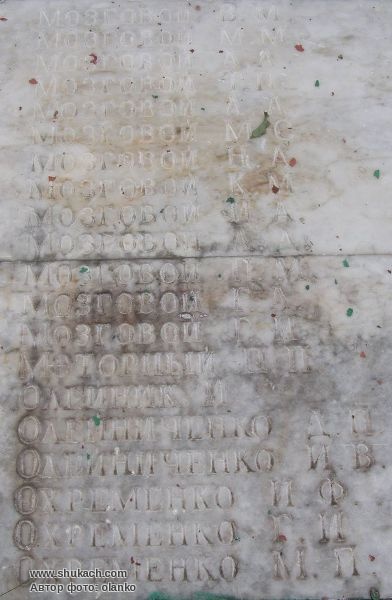 МОЗГОВОЙ В. М.
МОЗГОВОЙ М. М.
МОЗГОВОЙ А А
МОЗГОВОЙ
МОЗГОВОЙ А А
МОЗГОВОЙ М С
МОЗГОВОЙ А
МОЗГОВОЙ К М
МОЗГОВОЙ А
МОЗГОВОЙ А
МОЗГОВОЙ М
МОЗГОВОЙ А
МОЗГОВОЙ Г И
МОТОРНЫЙ П
ОЛЕЙНИК И
ОЛЕЙНИЧЕНКО А П
ОЛЕЙНИЧЕНКО И В
ОХРЕМЕНКО И Ф
ОХРЕМЕНКО Г И
ОХРЕМЕНКО М. П
www.shukach.com
Автор фото- olanko